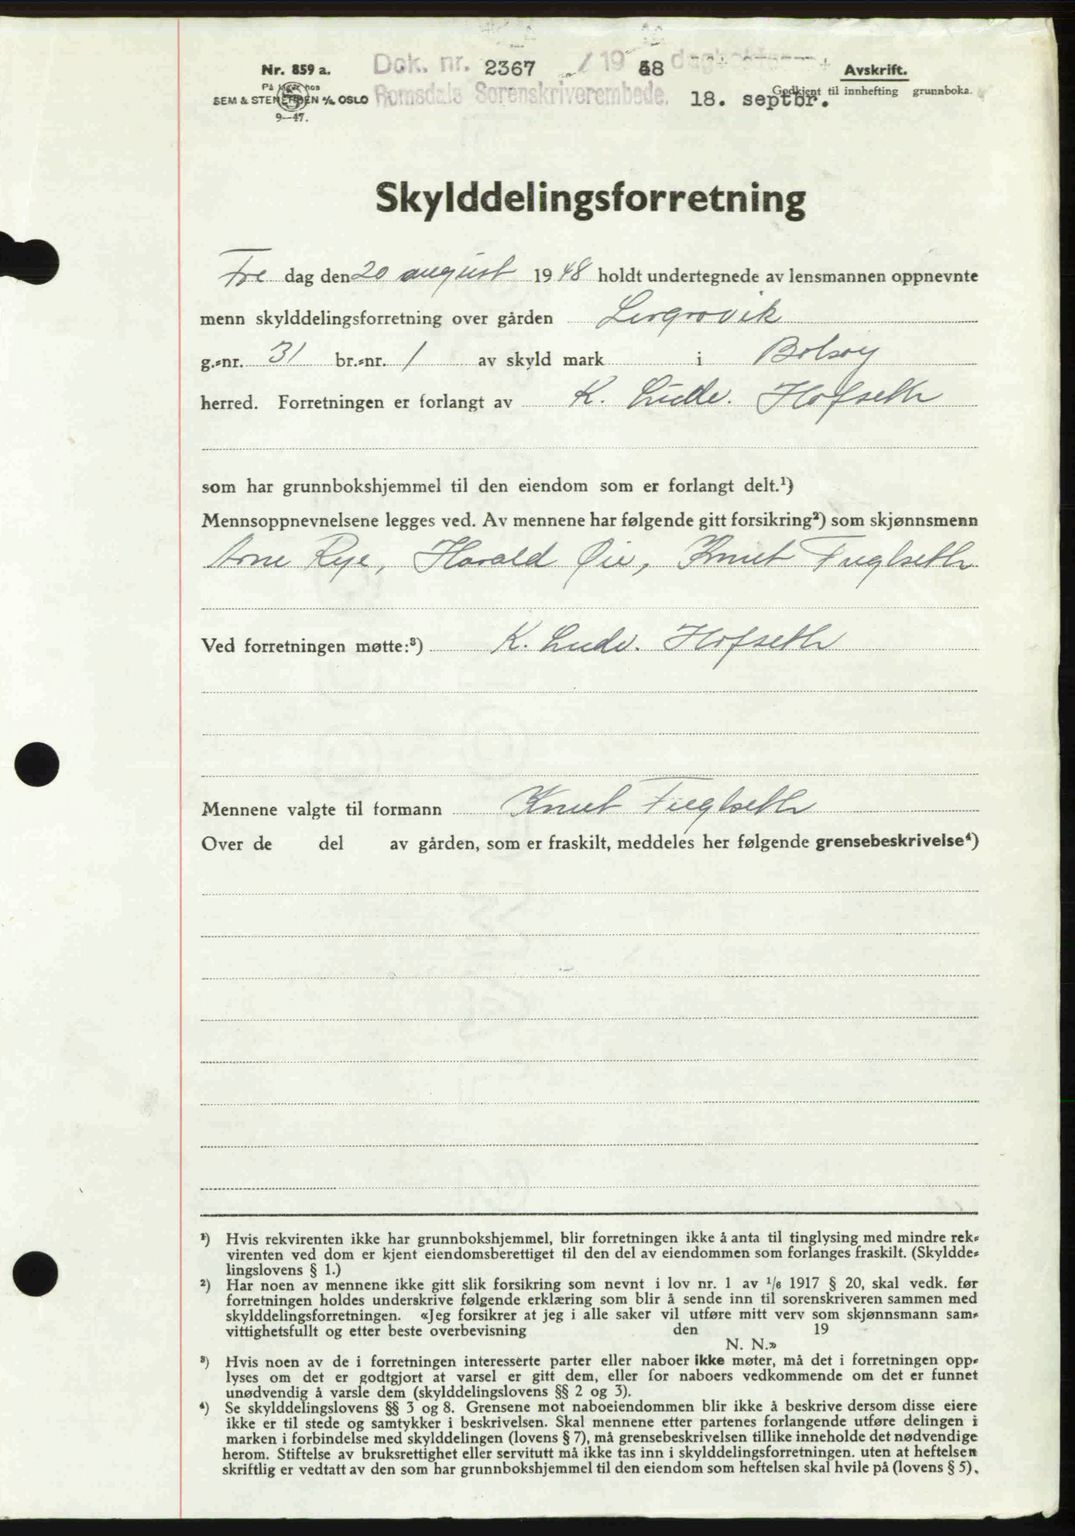 Nr. 859 a.
På lager hos
SEM & STENERSEN A/S OSLO
9—47.
Dok. nr. 2367 / 19 48
Romsdals Sorenskriverembede. 18. septbr.
Avskrift.
Godkjent til innhefting grunnboka.
Skylddelingsforretning
Fre dag den 20 august 1948 holdt undertegnede av lensmannen oppnevnte
menn skylddelingsforretning over gården Lergrovik
g.-nr. 31 br.-nr. 1 av skyld mark i Bolsøy
herred. Forretningen er forlangt av K. Ludv. Hofseth
som har grunnbokshjemmel til den eiendom som er forlangt delt.¹)
Mennsoppnevnelsene legges ved. Av mennene har følgende gitt forsikring²) som skjønnsmenn
Arne Rye, Harald Øie, Knut Fuglseth
Ved forretningen møtte:³) K. Ludv. Hofseth
Mennene valgte til formann Knut Fuglseth
Over de del av gården, som er fraskilt, meddeles her følgende grensebeskrivelse⁴)
¹) Hvis rekvirenten ikke har grunnbokshjemmel, blir forretningen ikke å anta til tinglysing med mindre rek-
virenten ved dom er kjent eiendomsberettiget til den del av eiendommen som forlanges fraskilt. (Skyldde-
lingslovens § 1.)
²) Har noen av mennene ikke gitt slik forsikring som nevnt i lov nr. 1 av ¹/₆ 1917 § 20, skal vedk. før
forretningen holdes underskrive følgende erklæring som blir å sende inn til sorenskriveren sammen med
skylddelingsforretningen. «Jeg forsikrer at jeg i alle saker vil utføre mitt verv som skjønnsmann sam-
vittighetsfullt og etter beste overbevisning den 19
N. N.»
³) Hvis noen av de i forretningen interesserte parter eller naboer ikke møter, må det i forretningen opp-
lyses om det er godtgjort at varsel er gitt dem, eller for naboers vedkommende om det er funnet
unødvendig å varsle dem (skylddelingslovens §§ 2 og 3).
⁴) Se skylddelingslovens §§ 3 og 8. Grensene mot naboeiendommen blir ikke å beskrive dersom disse eiere
ikke er til stede og samtykker i beskrivelsen. Skal mennene etter partenes forlangende utføre delingen i
marken i forbindelse med skylddelingen (lovens § 7), må grensebeskrivelsen tillike inneholde det nødvendige
herom. Stiftelse av bruksrettighet eller servitutt må ikke tas inn i skylddelingsforretningen. uten at heftelsen
skriftlig er vedtatt av den som har grunnbokshjemmel til den eiendom som heftelsen skal hvile på (lovens § 5).